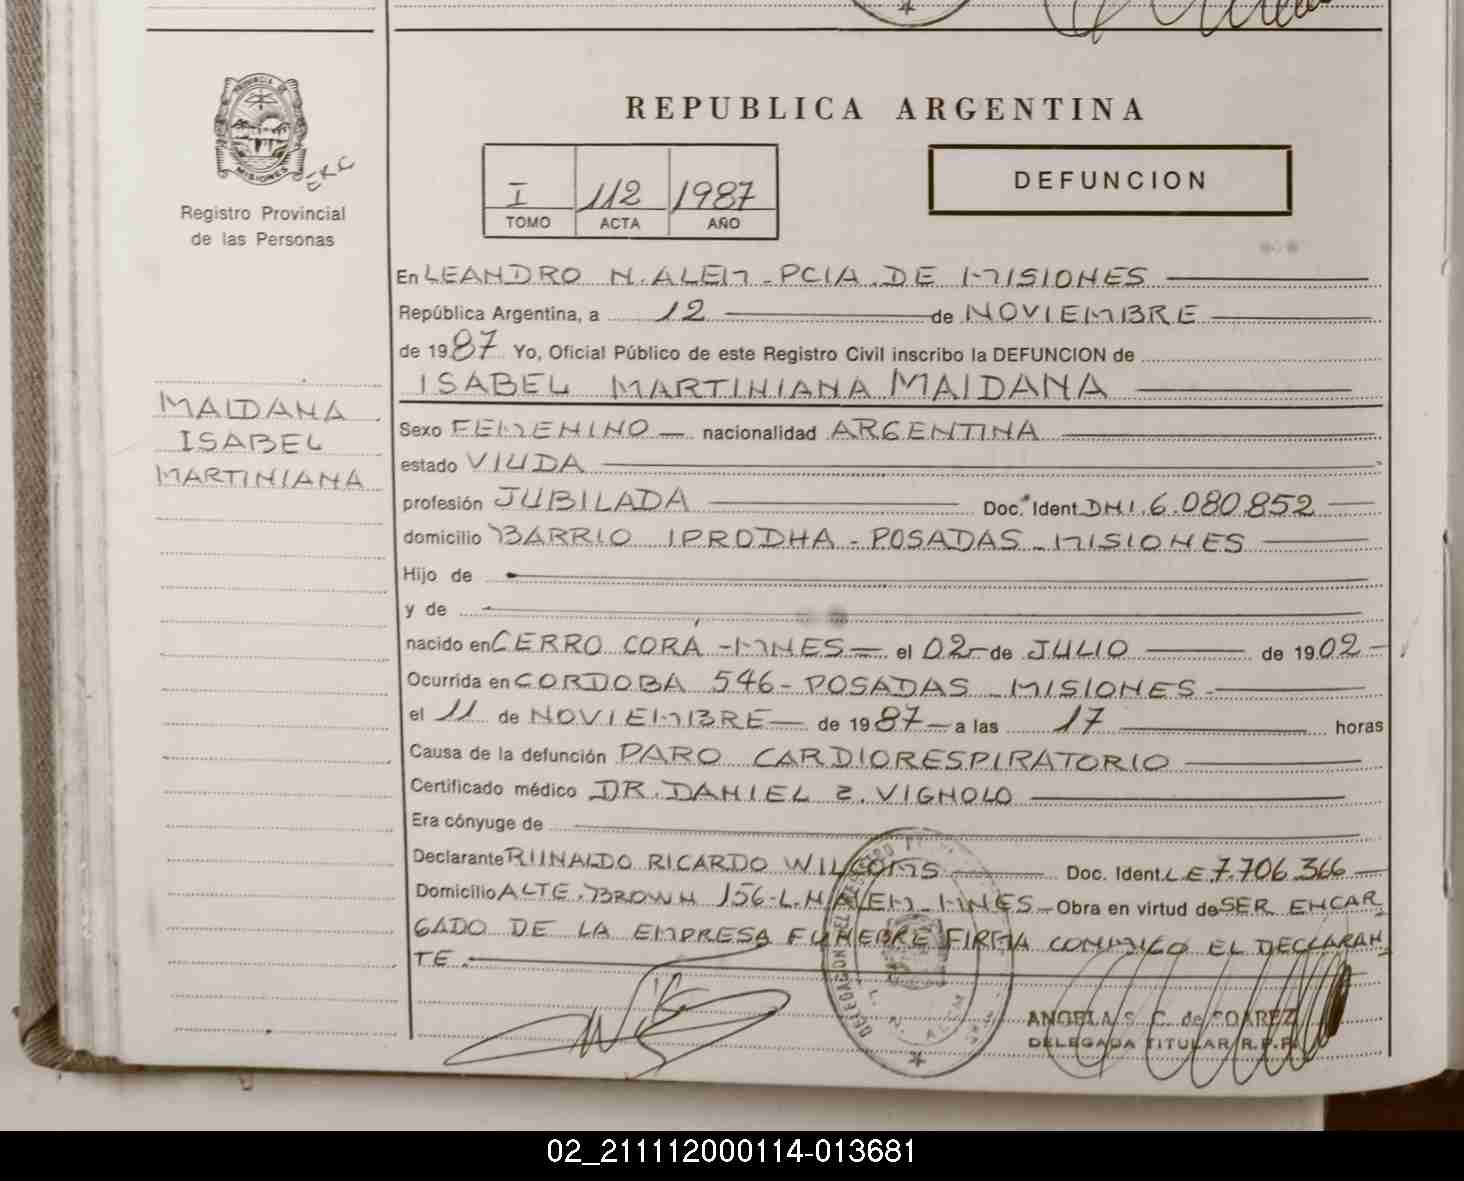 PROVINCIA DE
MISIONES
ERC
Registro Provincial
de las Personas
REPUBLICA ARGENTINA
I 112 1987
TOMO ACTA AÑO
DEFUNCION
En LEANDRO N. ALEM - PCIA. DE MISIONES
República Argentina, a 12 de NOVIEMBRE
de 1987 Yo, Oficial Público de este Registro Civil inscribo la DEFUNCION de
ISABEL MARTINIANA MAIDANA
MAIDANA
ISABEL
MARTINIANA
Sexo FEMENINO nacionalidad ARGENTINA
estado VIUDA
profesión JUBILADA Doc. Ident. DNI. 6.080.852
domicilio BARRIO IPRODHA - POSADAS - MISIONES
Hijo de
y de
nacido en CERRO CORÁ - MNES - el 02 - de JULIO de 1902 -
Ocurrida en CORDOBA 546 - POSADAS - MISIONES -
el 11 de NOVIEMBRE de 1987 a las 17 horas
Causa de la defunción PARO CARDIORESPIRATORIO
Certificado médico DR. DANIEL E. VIGNOLO
Era cónyuge de
Declarante RIINALDO RICARDO WILCOMS Doc. Ident. L.E. 7.706.366
Domicilio ALTE. BROWN 156 - L.N. ALEM - MNES - Obra en virtud de SER ENCAR
GADO DE LA EMPRESA FUNEBRE FIRMA CONMIGO EL DECLARAN
TE.
L. N. ALEM
ANGELA S. C. de SOAREZ
DELEGADA TITULAR R.P.P.
02_211112000114-013681